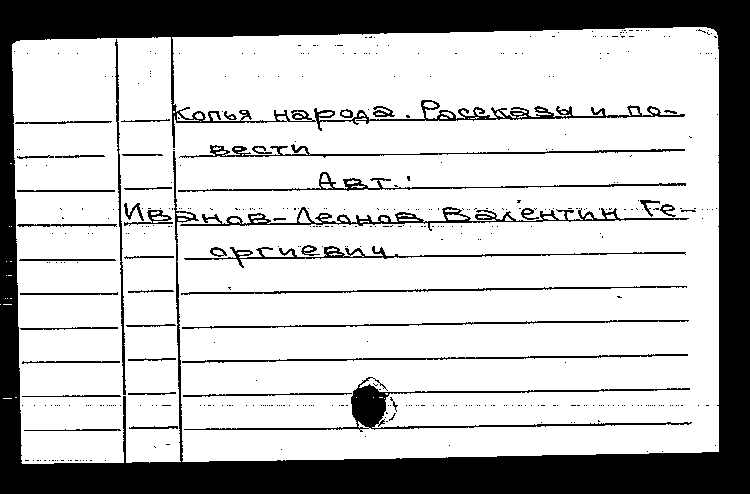 Копья народа. Рассказы и по-
вести
Авт.:
Иванов-Леонов, Валентин Ге-
оргиевич.